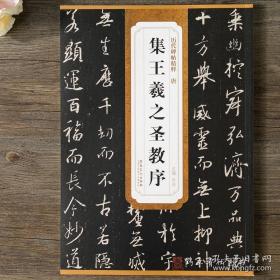 幽控寂弘濟万品典
十方舉威靈而無上抑
历代碑帖精粹 唐
集王羲之圣教序
無生歷千劫而不古若隱
若顯運百福而長今妙道